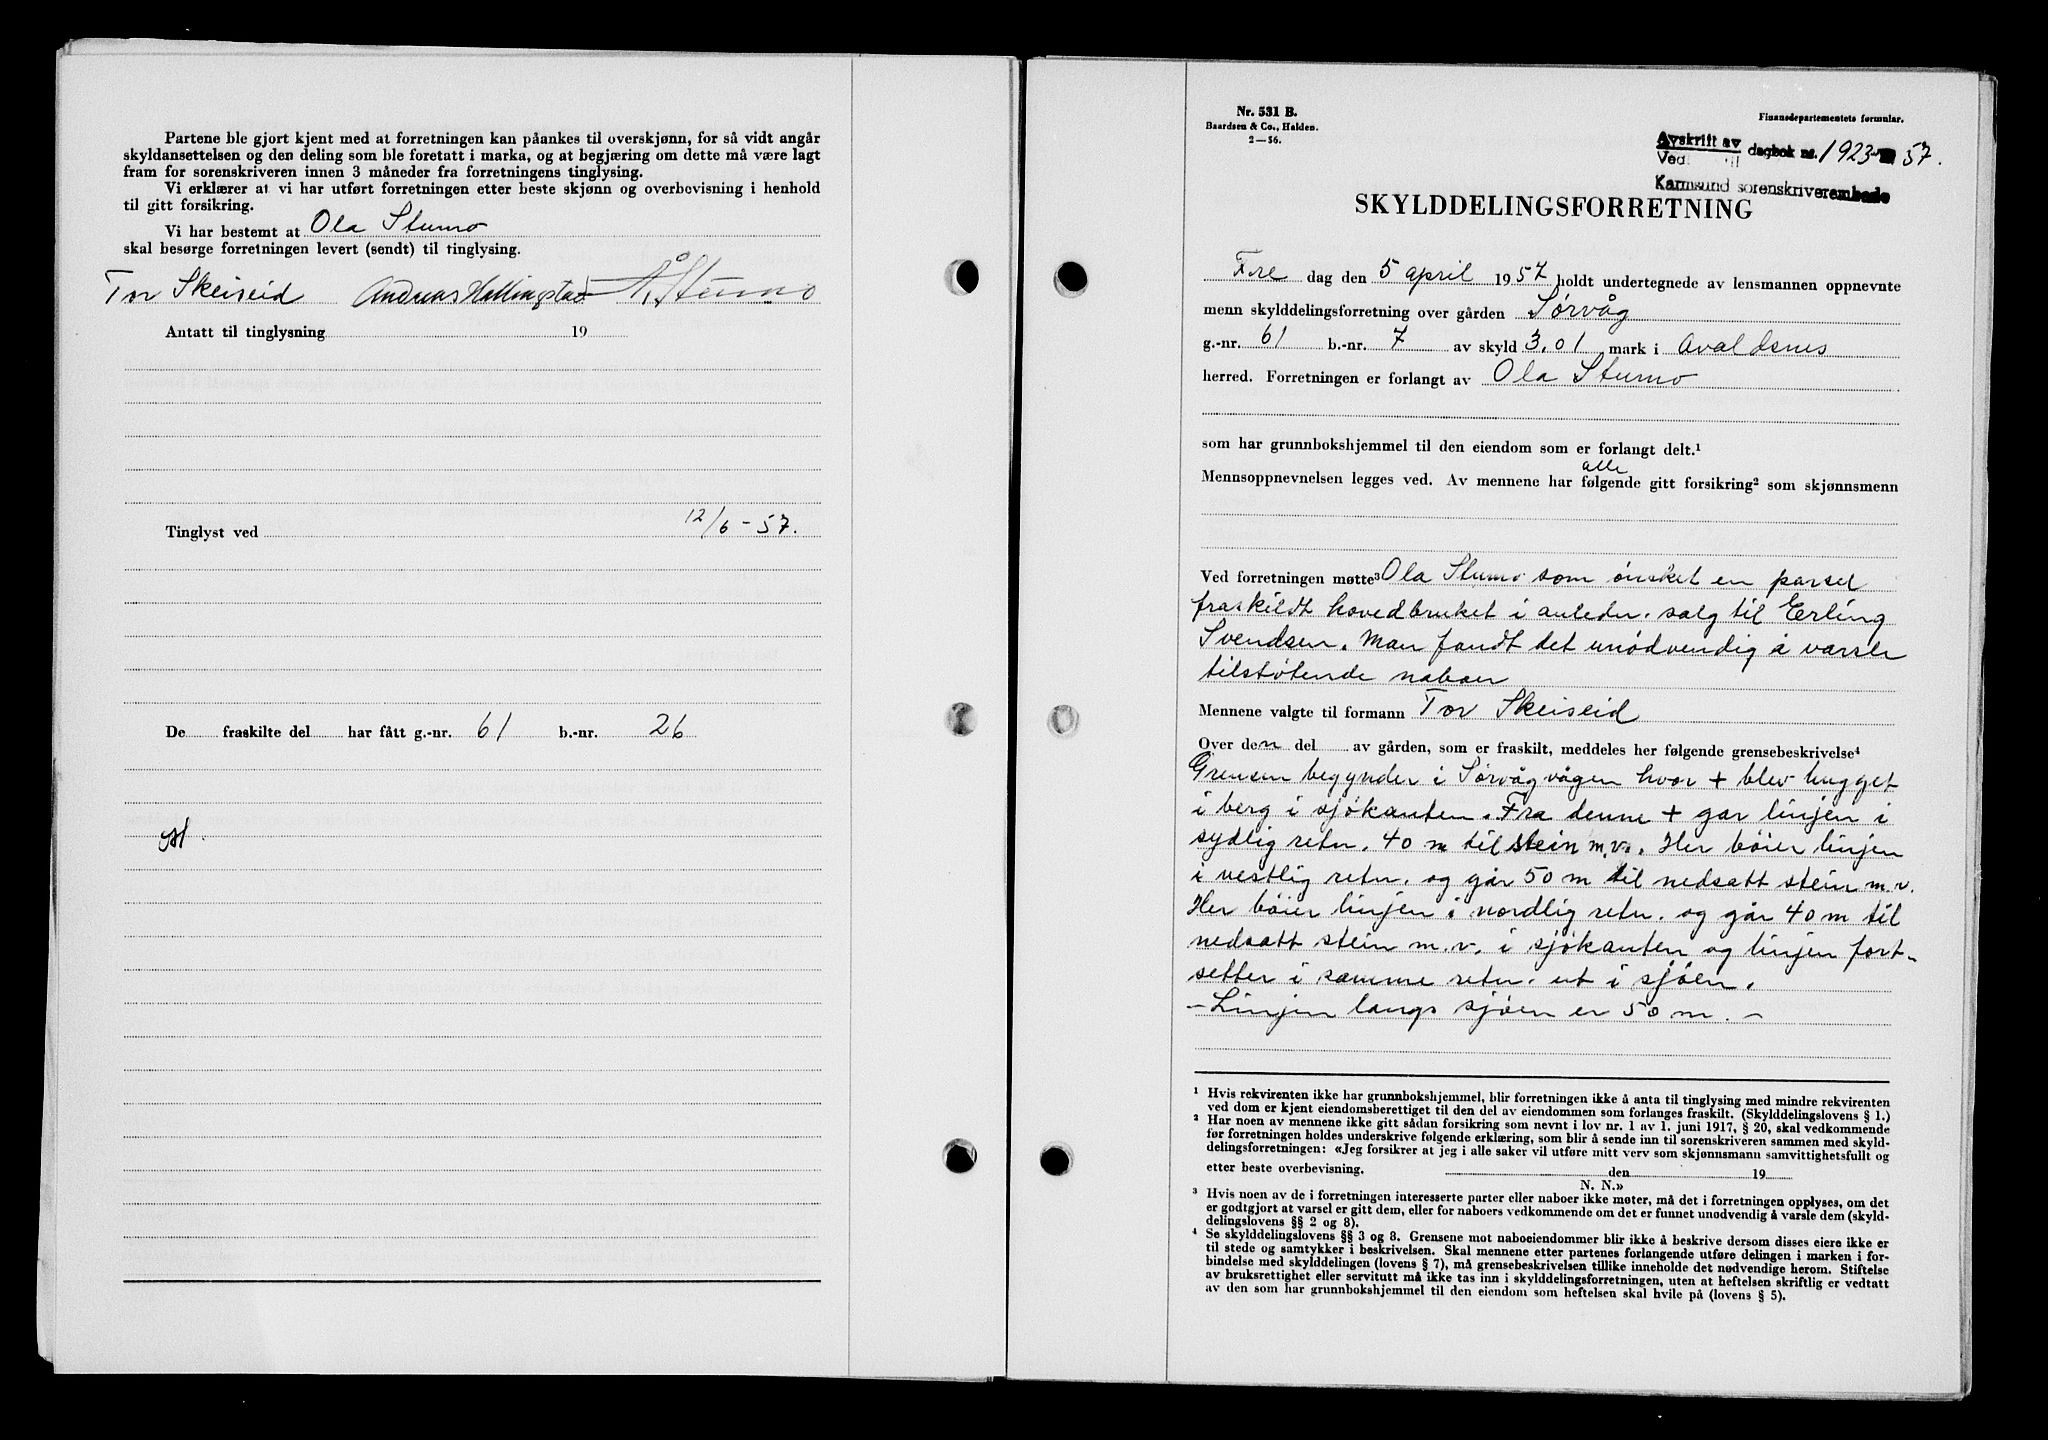 Partene ble gjort kjent med at forretningen kan påankes til overskjønn, for så vidt angår
skyldansettelsen og den deling som ble foretatt i marka, og at begjæring om dette må være lagt
fram for sorenskriveren innen 3 måneder fra forretningens tinglysing.
Vi erklærer at vi har utført forretningen etter beste skjønn og overbevisning i henhold
til gitt forsikring.
Vi har bestemt at Ola Stumo
skal besørge forretningen levert (sendt) til tinglysing.
Tor Skeiseid Andreas Hellingstad A. Stumo
Antatt til tinglysning 19
Tinglyst ved 12/6-57.
De fraskilte del har fått g.-nr. 61 b.-nr. 26
Nr. 531 B.
Baardsen & Co., Halden.
2—56.
Finansdepartementets formular.
Avskrift av
Ved dagbok nr. 1923 57.
Karmsund sorenskriverembede
SKYLDDELINGSFORRETNING
Fre dag den 5 april 1957 holdt undertegnede av lensmannen oppnevnte
menn skylddelingsforretning over gården Sørvåg
g.-nr. 61 b.-nr. 7 av skyld 3,01 mark i Avaldsnes
herred. Forretningen er forlangt av Ola Stumo
som har grunnbokshjemmel til den eiendom som er forlangt delt.¹
alle
Mennsoppnevnelsen legges ved. Av mennene har følgende gitt forsikring² som skjønnsmenn
Ved forretningen møtte³ Ola Stumo som ønsket en parsel
fraskildt hovedbruket i anledn. salg til Erling
Svendsen. Man fandt det unødvendig å varsle
tilstøtende naboer
Mennene valgte til formann Tor Skeiseid
Over den del av gården, som er fraskilt, meddeles her følgende grensebeskrivelse⁴
Grensen begynder i Sørvågvågen hvor + blev hugget
i berg i sjøkanten. Fra denne + går linjen i
sydlig retn. 40 m til stein m.v. Her bøier linjen
i vestlig retn. og går 50 m til nedsatt stein m.v.
Her bøier linjen i nordlig retn. og går 40 m til
nedsatt stein m.v. i sjøkanten og linjen fort-
setter i samme retn. ut i sjøen.
- Linjen langs sjøen er 50 m. -
¹ Hvis rekvirenten ikke har grunnbokshjemmel, blir forretningen ikke å anta til tinglysing med mindre rekvirenten
ved dom er kjent eiendomsberettiget til den del av eiendommen som forlanges fraskilt. (Skylddelingslovens § 1.)
² Har noen av mennene ikke gitt sådan forsikring som nevnt i lov nr. 1 av 1. juni 1917, § 20, skal vedkommende
før forretningen holdes underskrive følgende erklæring, som blir å sende inn til sorenskriveren sammen med skyld-
delingsforretningen: «Jeg forsikrer at jeg i alle saker vil utføre mitt verv som skjønnsmann samvittighetsfullt og
etter beste overbevisning. den 19
N. N.»
³ Hvis noen av de i forretningen interesserte parter eller naboer ikke møter, må det i forretningen opplyses, om det
er godtgjort at varsel er gitt dem, eller for naboers vedkommende om det er funnet unødvendig å varsle dem (skyld-
delingslovens §§ 2 og 8).
⁴ Se skylddelingslovens §§ 3 og 8. Grensene mot naboeiendommer blir ikke å beskrive dersom disses eiere ikke er
til stede og samtykker i beskrivelsen. Skal mennene etter partenes forlangende utføre delingen i marken i for-
bindelse med skylddelingen (lovens § 7), må grensebeskrivelsen tillike inneholde det nødvendige herom. Stiftelse
av bruksrettighet eller servitutt må ikke tas inn i skylddelingsforretningen, uten at heftelsen skriftlig er vedtatt
av den som har grunnbokshjemmel til den eiendom som heftelsen skal hvile på (lovens § 5).